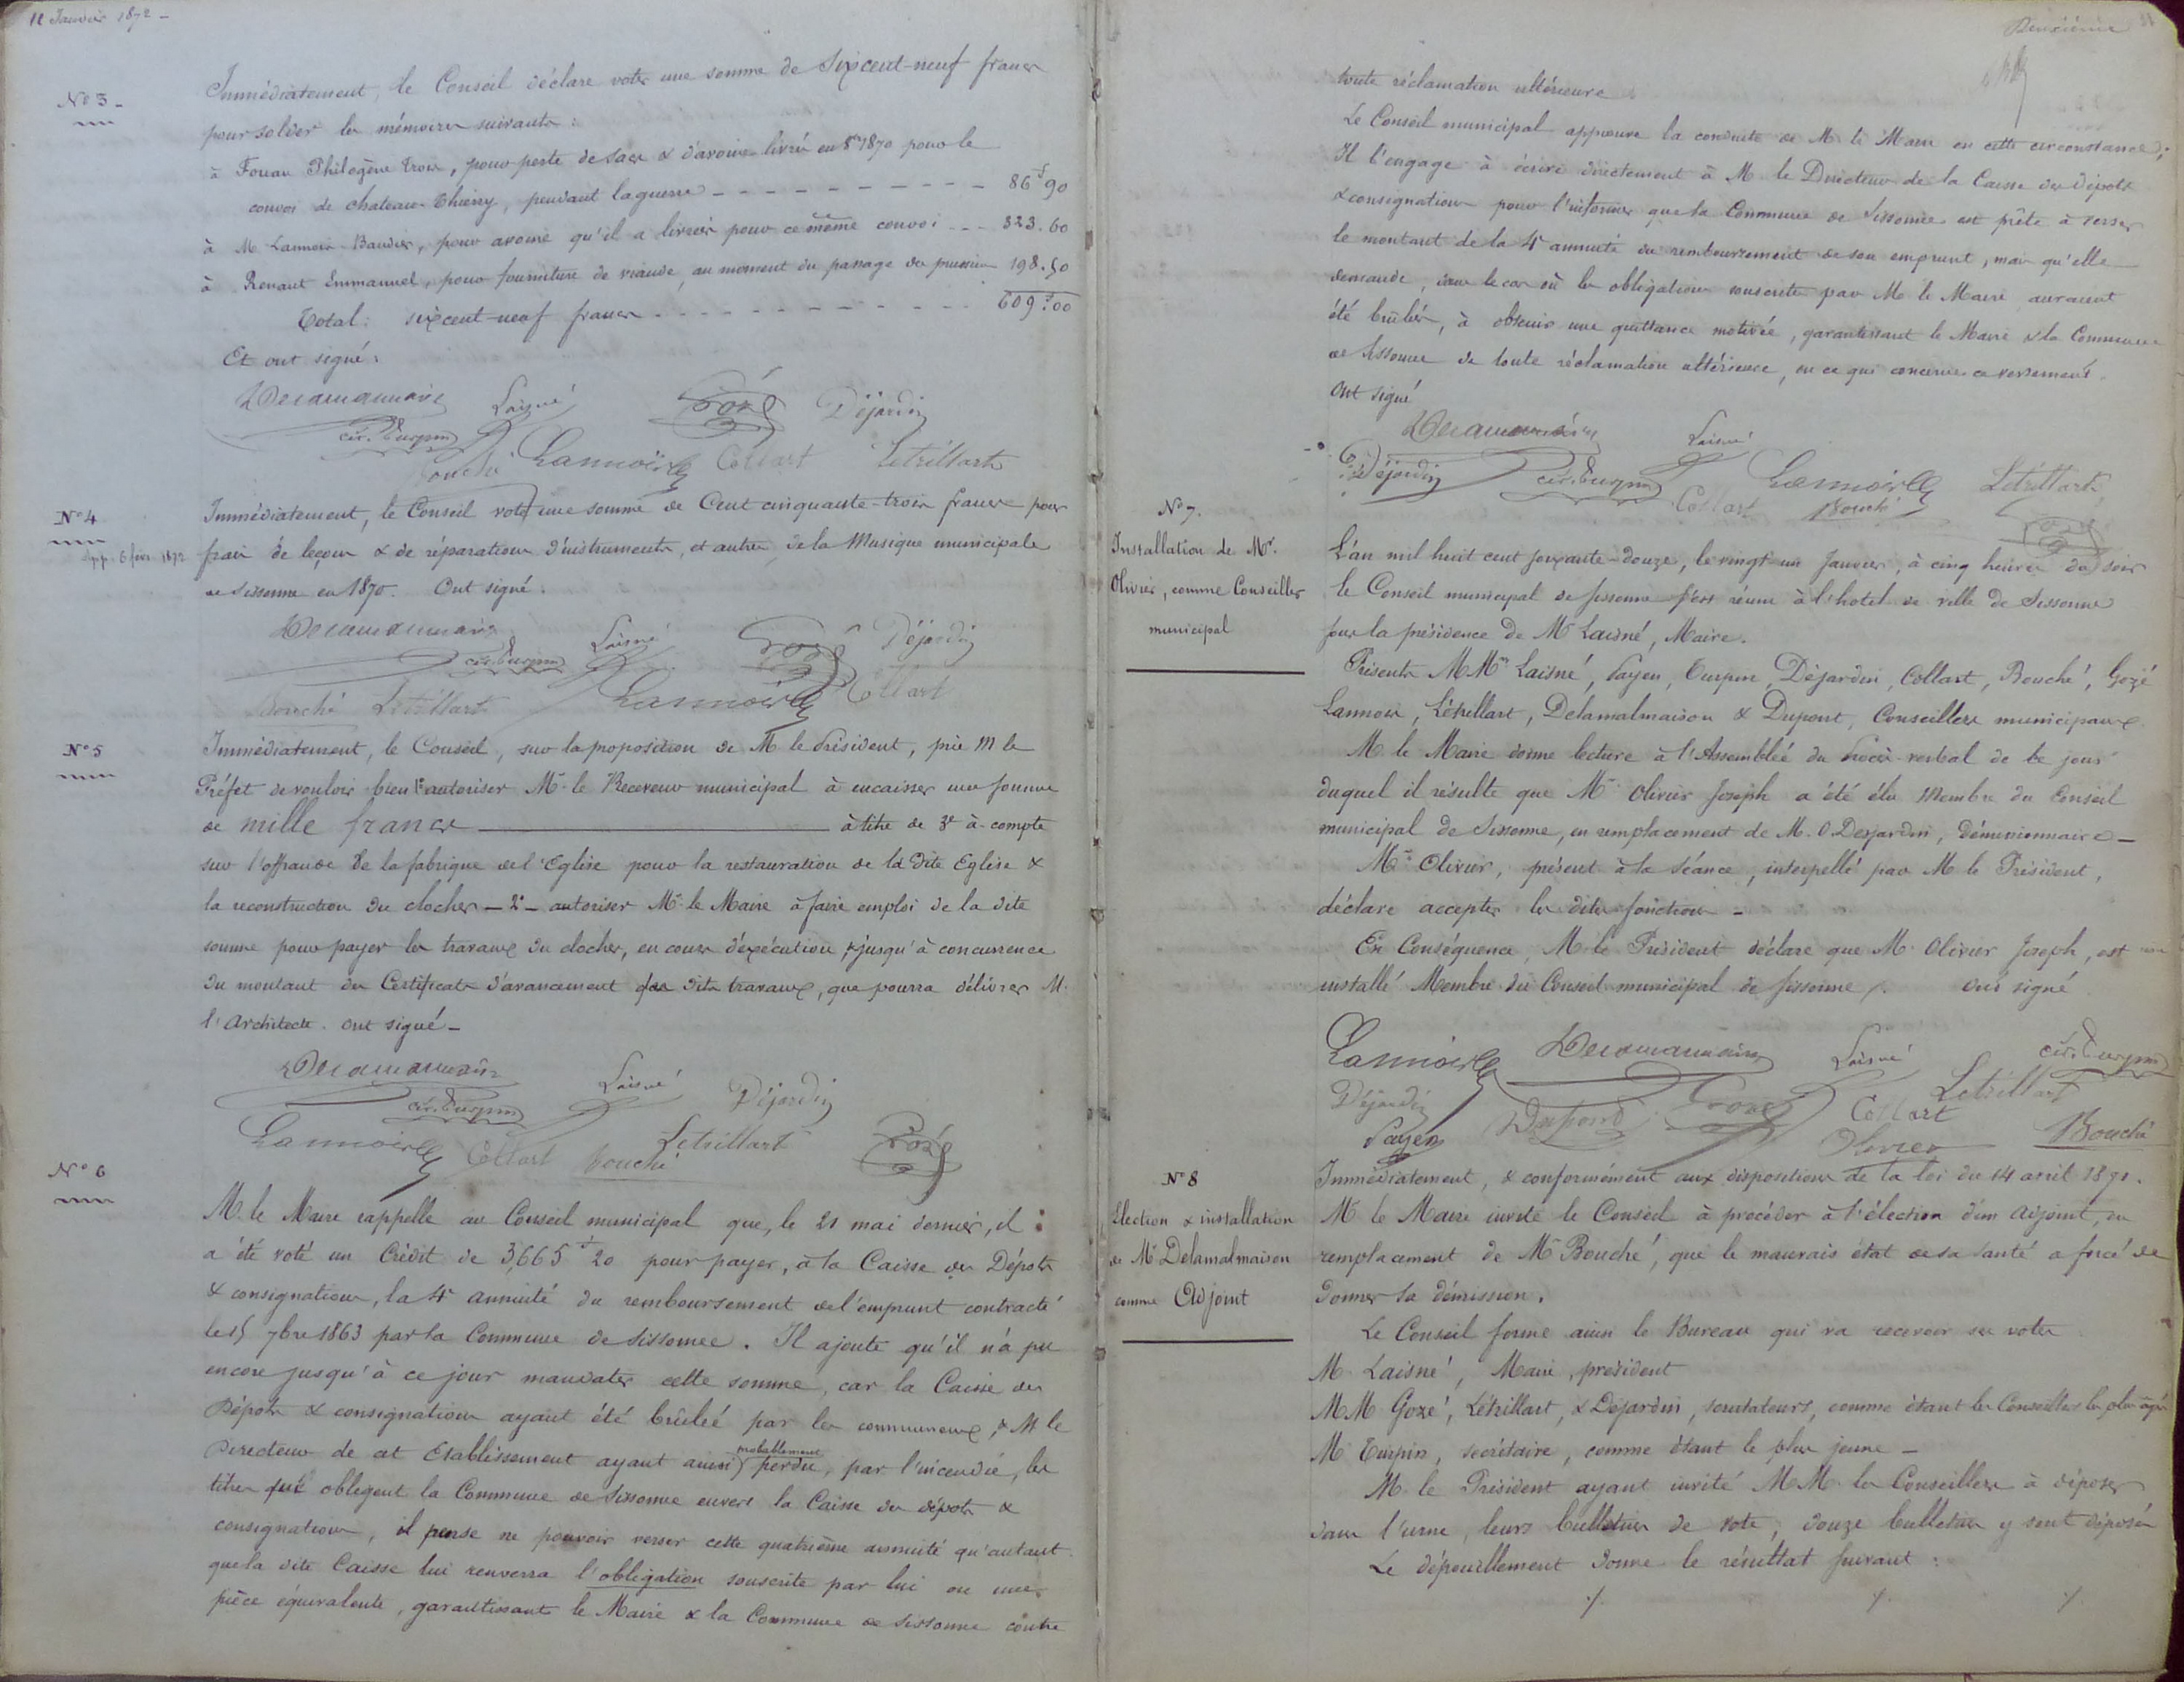 12 Janvier 1872 -
N° 3 -
Immédiatement, le Conseil déclare voter une somme de Six cent-neuf francs
pour solder les mémoires suivants :
à Fouan Philogène Crou, pour perte de sacs & d'avoine livrés en 8bre 1870 pour le
convoi de Chateau-Thierry, pendant la guerre - - - - - - - - - - 86f 90
à M. Lannois-Baudier, pour avoine qu'il a livrée pour ce même convoi - - - 323.60
à Renaut Emmanuel, pour fourniture de viande, au moment du passage des prussiens 198.50
Total : six cent-neuf francs - - - - - - - - - - 609f.00
Et ont signé :
Delamalmaison Laisné Gozé Déjardin
cés. Turpin
Bouché Lannois Collart Létrillart
N° 4
App. 6 févr. 1872
Immédiatement, le Conseil vote une somme de Cent cinquante-trois francs pour
frais de leçons & de réparations d'instruments, et autres, de la Musique municipale
de Sissonne en 1870. Ont signé.
Delamalmaison Laisné Gozé Déjardin
cés. Turpin
Bouché Létrillart Lannois Collart
N° 5
Immédiatement, le Conseil, sur la proposition de M. le Président, prie M le
Préfet de vouloir bien 1° autoriser Mr le Receveur municipal à encaisser une somme
de mille francs à titre de 3e à-compte
sur l'offrande de la fabrique de l'Eglise pour la restauration de la dite Eglise &
la reconstruction du clocher - 2° - autoriser Mr le Maire à faire emploi de la dite
somme pour payer les travaux du clocher, en cours d'exécution, & jusqu'à concurrence
du montant des Certificats d'avancement des dits travaux, que pourra délivrer M.
l'Architecte. Ont signé -
Delamalmaison Laisné Déjardin
cés. Turpin
Lannois Collart Bouché Létrillart Gozé
N° 6
M. le Maire rappelle au Conseil municipal que, le 21 mai dernier, il
a été voté un Crédit de 3,665f 20 pour payer, à la Caisse des Dépots
& consignations, la 4e annuité du remboursement de l'emprunt contracté
le 15 7bre 1863 par la Commune de Sissonne. Il ajoute qu'il n'a pu
encore jusqu'à ce jour mandater cette somme, car la Caisse des
Dépots & consignations ayant été brûlée par les communeux, & M le
Directeur de cet Etablissement ayant ainsi probablement perdu, par l'incendie, les
titres qui obligent la Commune de Sissonne envers la Caisse des dépots &
consignations, il pense ne pouvoir verser cette quatrième annuité qu'autant
que la dite Caisse lui renverra l'obligation souscrite par lui ou une
pièce équivalente, garantissant le Maire & la Commune de Sissonne contre
Deuxième
toute réclamation ultérieure.
Le Conseil municipal approuve la conduite de M. le Maire en cette circonstance ;
Il l'engage à écrire directement à M. le Directeur de la Caisse des Dépots
& consignations pour l'informer que la Commune de Sissonne est prête à verser
le montant de la 4e annuité du remboursement de son emprunt, mais qu'elle
demande, dans le cas où les obligations souscrites par M. le Maire auraient
été brûlées, à obtenir une quittance motivée, garantissant le Maire & la Commune
de Sissonne de toute réclamation ultérieure, en ce qui concerne ce versement.
Ont signé
Delamalmaison Laisné
Déjardin cés. Turpin Collart Lannois Létrillart
Bouché Gozé
N° 7.
Installation de Mr.
Olivier, comme Conseiller
municipal
L'an mil huit cent soixante-douze, le vingt-un Janvier, à cinq heures du soir
le Conseil municipal de Sissonne s'est réuni à l'hotel de ville de Sissonne
sous la présidence de Mr Laisné, Maire.
Présents MMrs Laisné, Payen, Turpin, Déjardin, Collart, Bouché, Gozé
Lannois, Létrillart, Delamalmaison & Dupont, Conseillers municipaux
M. le Maire donne lecture à l'Assemblée du Procès-verbal de ce jour
duquel il résulte que Mr Olivier Joseph a été élu Membre du Conseil
municipal de Sissonne, en remplacement de M. O. Desjardin, démissionnaire -
Mr Olivier, présent à la séance, interpellé par M le Président,
déclare accepter les dites fonctions -
En Conséquence, M. le Président déclare que M. Olivier Joseph, est
installé Membre du Conseil municipal de Sissonne. Ont signé
Lannois Delamalmaison Laisné cés. Turpin
Déjardin Dupont Gozé Collart Létrillart
Payen Olivier Bouché
N° 8
Election & installation
de Mr Delamalmaison
comme Adjoint
Immédiatement, & conformément aux dispositions de la loi du 14 avril 1871.
M. le Maire invite le Conseil à procéder à l'élection d'un Adjoint, en
remplacement de Mr Bouché, que le mauvais état de sa santé a forcé de
donner sa démission.
Le Conseil forme ainsi le Bureau qui va recevoir ses votes
M. Laisné, Maire, président
MM Gozé, Létrillart, & Déjardin, scrutateurs, comme étant les Conseillers les plus âgés
M. Turpin, secrétaire, comme étant le plus jeune -
M. le Président ayant invité MM. les Conseillers à déposer
dans l'urne, leurs bulletins de vote, douze bulletins y sont déposés
Le dépouillement donne le résultat suivant :
./. ./. ./.